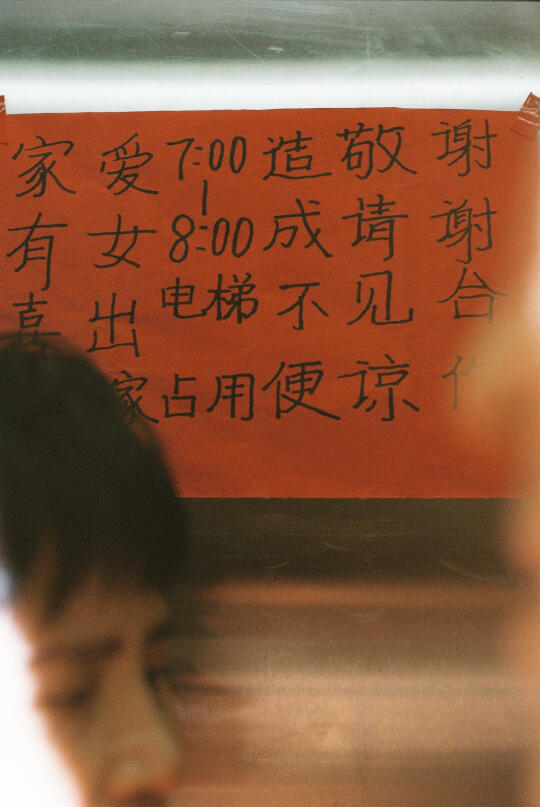 家有喜
爱女出嫁
7:00-8:00电梯占用
造成不便
敬请见谅
谢谢合